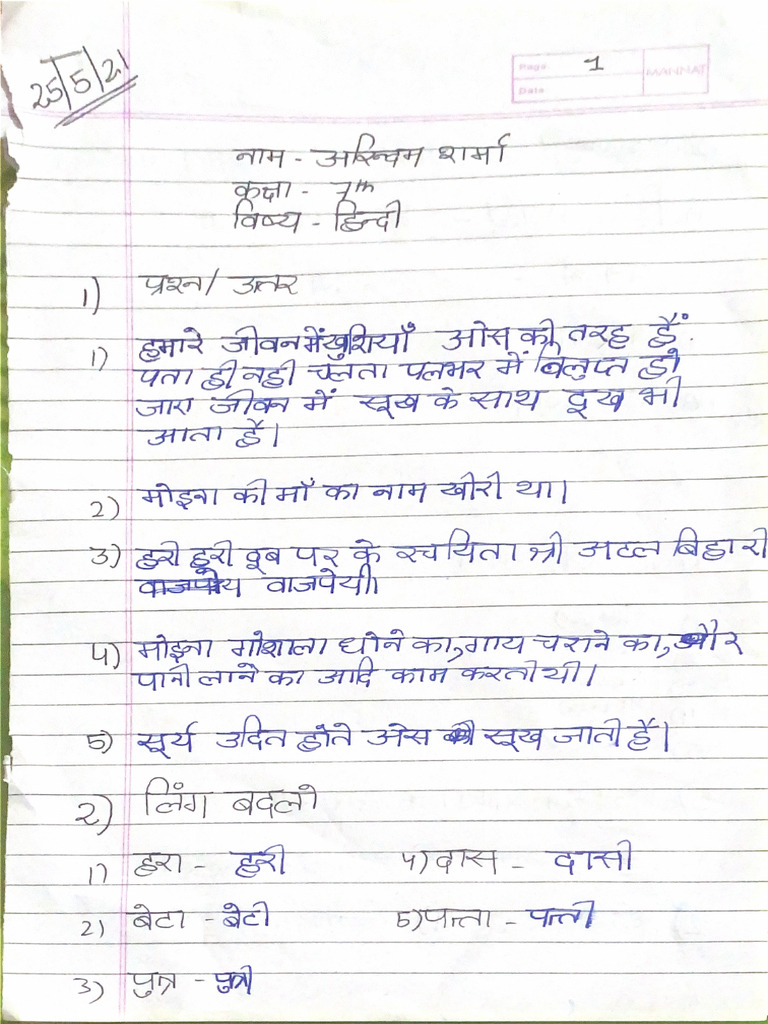 25/5/21
Page 1 MANNAT
Date
नाम - अरिन्दम शर्मा
कक्षा - 7th
विष्य - हिन्दी
1) प्रश्न/उत्तर
1) हमारे जीवन में खुशियाँ ओस की तरह हैं.
पता ही नही चलता पलभर में विलुप्त हो
जाए जीवन में सूख के साथ दूख भी
आता है।
2) मोइना की माँ का नाम खीरी था।
3) हरी हूरी दूब पर के रचयिता श्री अटल बिहारी
वाजपेयी।
4) मोइना गोशाला धोने का, गाय चराने का, और
पानी लाने का आदि काम करती थी।
5) सूर्य उदित होते ओस सूख जाती है।
2) लिंग बदलो
1) हरा - हरी 4) दास - दासी
2) बेटा - बेटी 5) पत्ता - पत्ती
3) पुत्र - पुत्री